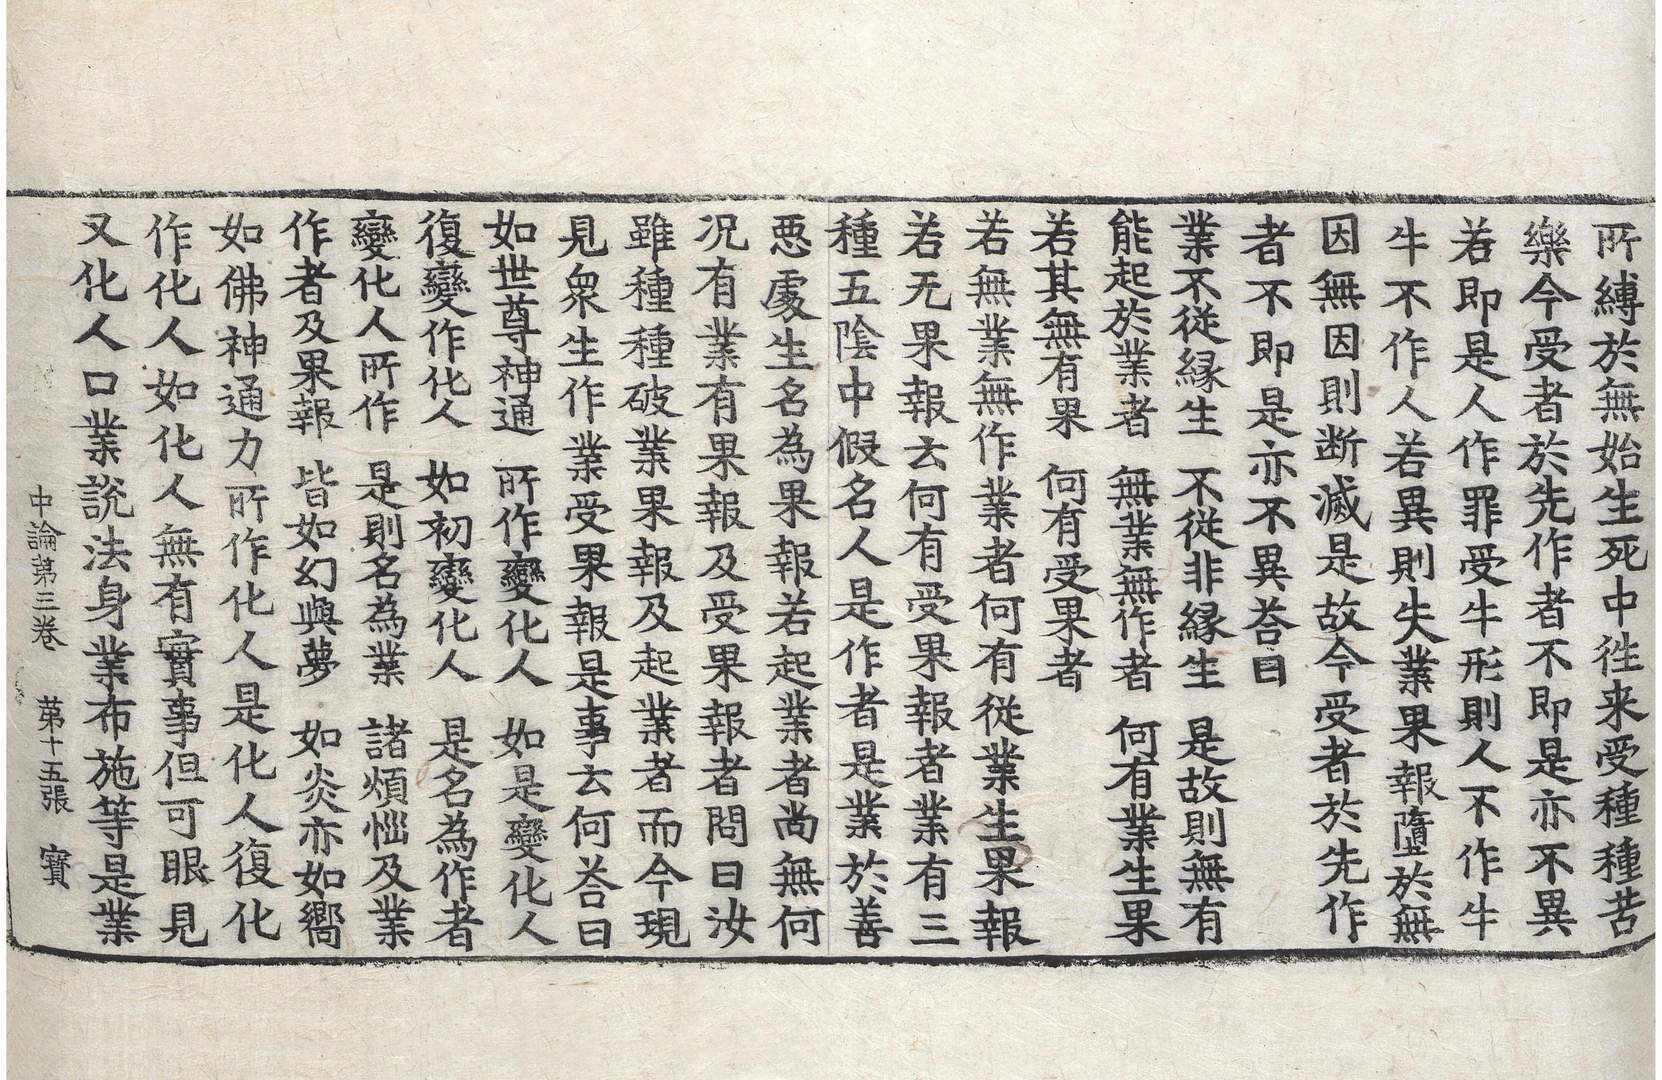 所縛於無始生死中往来受種種苦
樂今受者於先作者不即是亦不異
若即是人作罪受牛形則人不作牛
牛不作人若異則失業果報墮於無
因無因則断滅是故今受者於先作
者不即是亦不異荅曰
業不從緣生　不從非緣生　是故則無有
能起於業者　無業無作者　何有業生果
若其無有果　何有受果者
若無業無作業者何有從業生果報
若无果報云何有受果報者業有三
種五陰中假名人是作者是業於善
惡處生名為果報若起業者尚無何
况有業有果報及受果報者問曰汝
雖種種破業果報及起業者而今現
見衆生作業受果報是事云何荅曰
如世尊神通　所作變化人　如是變化人
復變作化人　如初變化人　是名為作者
變化人所作　是則名為業　諸煩惱及業
作者及果報　皆如幻與夢　如炎亦如嚮
如佛神通力所作化人是化人復化
作化人如化人無有實事但可眼見
又化人口業說法身業布施等是業
中論第三卷　第十五張　寳